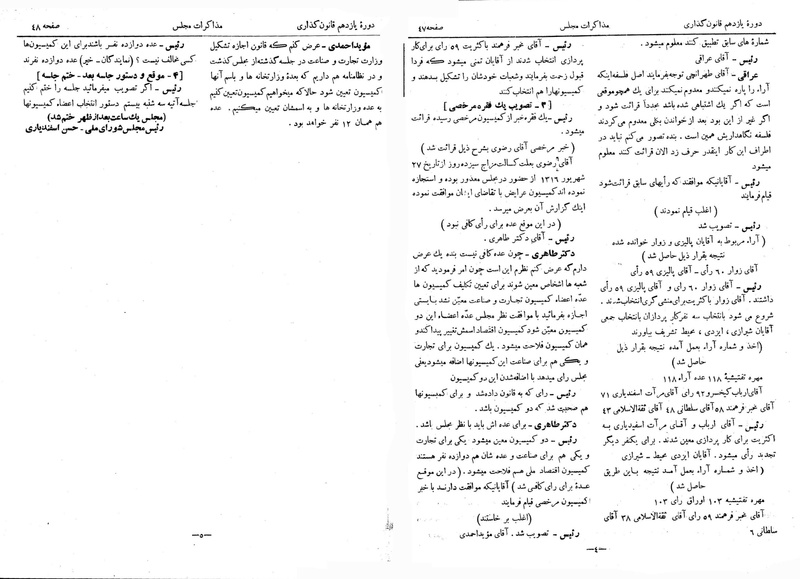 دورهٔ یازدهم قانون گذاری
مذاکرات مجلس
صفحه ۴۷
شماره های سابق تطبیق کنند معلوم میشود .
رئیس - آقای عراقی
عراقی - آقای طهرانچی توجه بفرمایند اصل فلسفه اینکه
آراء را پاره نمیکنند و معدوم نمیکنند برای یک همچو موقعی
است که اگر یک اشتباهی شده باشد عدداً قرائت شود و
اگر غیر از این بود بعد از خواندن بکلی معدوم می کردند
فلسفه نگاهداریش همین است . بنده تصور می کنم نباید در
اطراف این کار اینقدر حرف زد الان قرائت کنند معلوم
میشود
رئیس - آقایانیکه موافقند که رأیهای سابق قرائت شود
قیام فرمایند
( اغلب قیام نمودند )
رئیس - تصویب شد
( آراء مربوط به آقایان پالیزی و زوار خوانده شده
نتیجه بقرار ذیل حاصل شد )
آقای زوار ۶۰ رأی - آقای پالیزی ۵۹ رأی
رئیس - آقای زوار ۶۰ رأی و آقای پالیزی ۵۹ رأی
داشتند . آقای زوار با کثریت برای منشی گری انتخاب شدند .
شروع می شود بانتخاب سه نفر کار پردازان بانتخاب جمعی
آقایان شیرازی ، ایزدی ، محیط تشریف بیاورند
(اخذ و شماره آراء بعمل آمده نتیجه بقرار ذیل
حاصل شد )
مهره تفتیشیه ۱۱۸ عده آراء ۱۱۸
آقای ارباب کیخسرو ۹۲ رای آقای مرآت اسفندیاری ۷۱
آقای مخبر فرهمند ۵۸ آقای سلطانی ۴۸ آقای ثقةالاسلامی ۴۳
رئیس - آقای ارباب و آقای مرآت اسفندیاری به
اکثریت برای کار پردازی معین شدند . برای یکنفر دیگر
تجدید رأی میشود . آقایان ایزدی محیط - شیرازی
( اخذ و شماره آراء بعمل آمد نتیجه باین طریق
حاصل شد )
مهره تفتیشیه ۱۰۳ اوراق رای ۱۰۳
آقای مخبر فرهمند ۵۹ رای آقای ثقةالاسلامی ۳۸ آقای
سلطانی ۶
رئیس - آقای مخبر فرهمند باکثریت ۵۹ رای برای کار
پردازی انتخاب شدند از آقایان تمنی میشود که فردا
قبول زحمت بفرمایند و شعبات خودشان را تشکیل بدهند و
کمیسیونها را هم انتخاب کنند
[ ۳ - تصویب یک فقره مرخصی ]
رئیس - یک فقره خبر از کمیسیون مرخصی رسیده قرائت
میشود .
( خبر مرخصی آقای رضوی بشرح ذیل قرائت شد )
آقای رضوی بعلت کسالت مزاج سیزده روز از تاریخ ۲۷
شهریور ۱۳۱۶ از حضور در مجلس معذور بوده و استجازه
نموده اند کمیسیون عرایض با تقاضای ایشان موافقت نموده
اینک گزارش آن بعرض میرسد .
( در این موقع عده برای رأی کافی نبود )
رئیس - آقای دکتر طاهری .
دکتر طاهری - چون عده کافی نیست بنده یک عرض
دارم که عرض کنم نظرم این است چون امر فرمودید که از
شعبه ها اشخاص معین شوند برای تعیین تکلیف کمیسیون ها
عدّه اعضاء کمیسیون تجارت و صناعت معیّن نشد بایستی
اجازه بفرمائید با موافقت نظر مجلس عدّه اعضاء این دو
کمیسیون معیّن شود کمیسیون اقتصاد اسمش تغییر پیدا کند و
همان کمیسیون فلاحت میشود . یک کمیسیون برای تجارت
و یکی هم برای صناعت این کمیسیونها اضافه میشود یعلی
مجلس رای میدهد با اضافه شدن این دو کمیسیون
رئیس - رای که به قانون داده شد و برای کمیسیونها
هم صحبت شد که دو کمیسیون باشد .
دکتر طاهری - برای عده اش باید با نظر مجلس باشد .
رئیس - دو کمیسیون معین میشود یکی برای تجارت
و یکی هم برای صناعت و عده شان هم دوازده نفر هستند
کمیسیون اقتصاد ملی هم فلاحت میشود . ( در این موقع
عده برای رای کافی شد ) آقایانیکه موافقت دارند با خبر
کمیسیون مرخصی قیام فرمایند
(اغلب بر خاستند)
رئیس - تصویب شد . آقای مؤید احمدی
—۴—
دورهٔ یازدهم قانون گذاری
مذاکرات مجلس
صفحه ۴۸
مؤید احمدی - عرض کنم که قانون اجازه تشکیل
وزارت تجارت و صناعت در جلسه گذشته از مجلس گذشت
و در نظامنامه هم داریم که بعدهٔ وزارتخانه ها و باسم آنها
کمیسیون تعیین شود حالا که میخواهیم کمیسیون تعیین کنیم
به عده وزارتخانه ها و به اسمشان تعیین میکنیم . عده
هم همان ۱۲ نفر خواهد بود .
رئیس - عده دوازده نفر باشند برای این کمیسیونها
کسی مخالف نیست ؟ (نمایندگان - خیر) عده دوازده نفرند
[ ۴ - موقع و دستور جلسه بعد - ختم جلسه ]
رئیس - اگر تصویب میفرمائید جلسه را ختم کنیم
جلسه آتیه سه شنبه بیستم دستور انتخاب اعضاء کمیسیونها
(مجلس یکساعت بعد از ظهر ختم شد)
رئیس مجلس شورای ملی - حسن اسفندیاری
—۵—